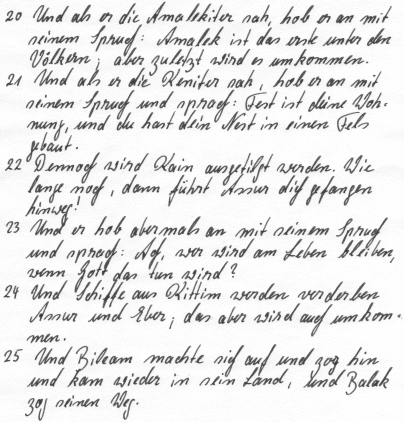 20 Und als er die Amalekiter sah, hob er an mit
seinem Spruch: Amalek ist das erste unter den
Völkern; aber zuletzt wird es umkommen.
21 Und als er die Keniter sah, hob er an mit
seinem Spruch und sprach: Fest ist deine Woh-
nung, und du hast dein Nest in einen Fels
gebaut.
22 Dennoch wird Kain ausgetilgt werden. Wie
lange noch, dann führt Assur dich gefangen
hinweg!
23 Und er hob abermals an mit seinem Spruch
und sprach: Ach, wer wird am Leben bleiben,
wenn Gott das tun wird?
24 Und Schiffe aus Kittim werden verderben
Assur und Eber; das aber wird auch umkom-
men.
25 Und Bileam machte sich auf und zog hin
und kam wieder in sein Land, und Balak
zog seinen Weg.